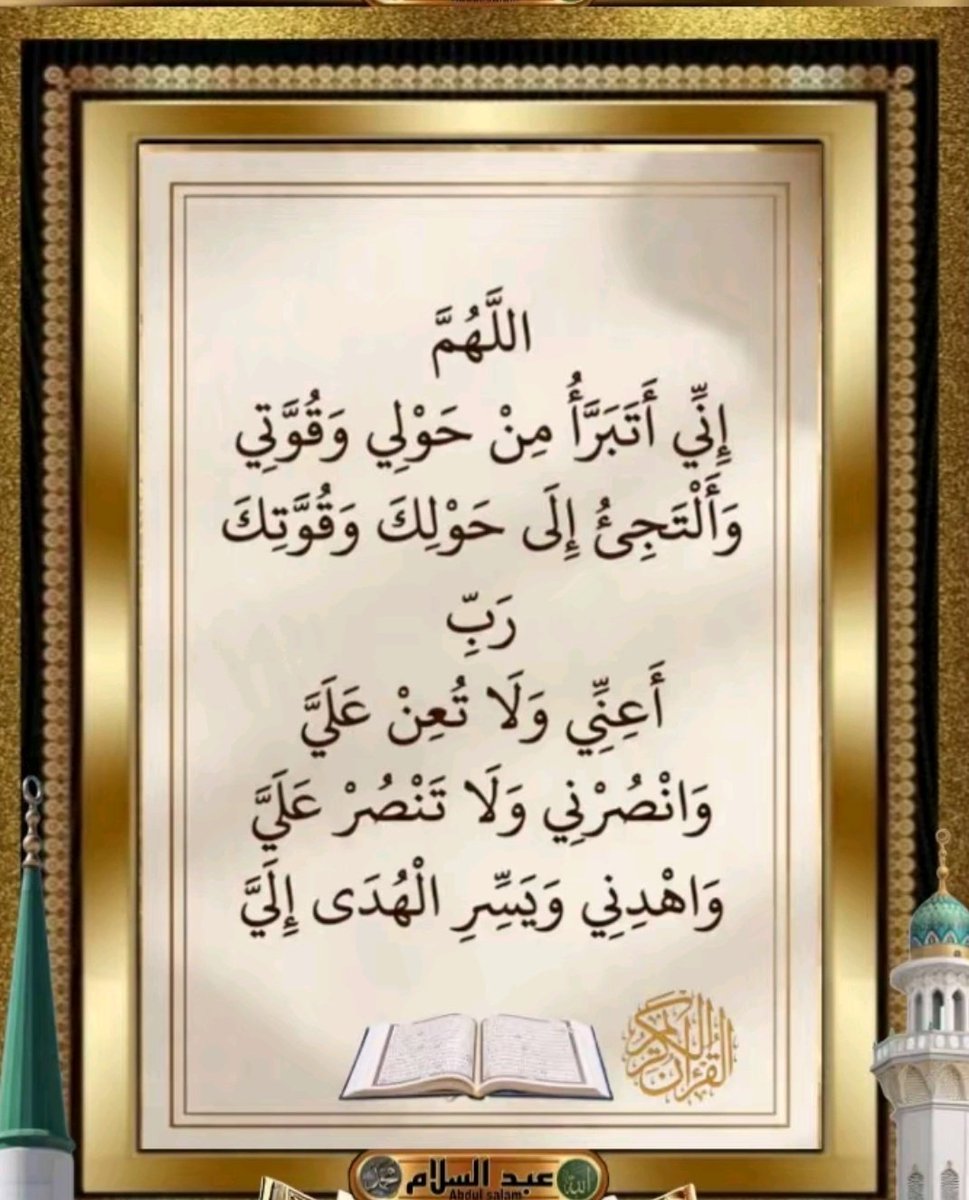 اللَّهُمَّ
إِنِّي أَتَبَرَّأُ مِنْ حَوْلِي وَقُوَّتِي
وَأَلْتَجِئُ إِلَى حَوْلِكَ وَقُوَّتِكَ
رَبِّ
أَعِنِّي وَلَا تُعِنْ عَلَيَّ
وَانْصُرْنِي وَلَا تَنْصُرْ عَلَيَّ
وَاهْدِنِي وَيَسِّرِ الْهُدَى إِلَيَّ
القرآن الكريم
عبد السلام
Abdul salam